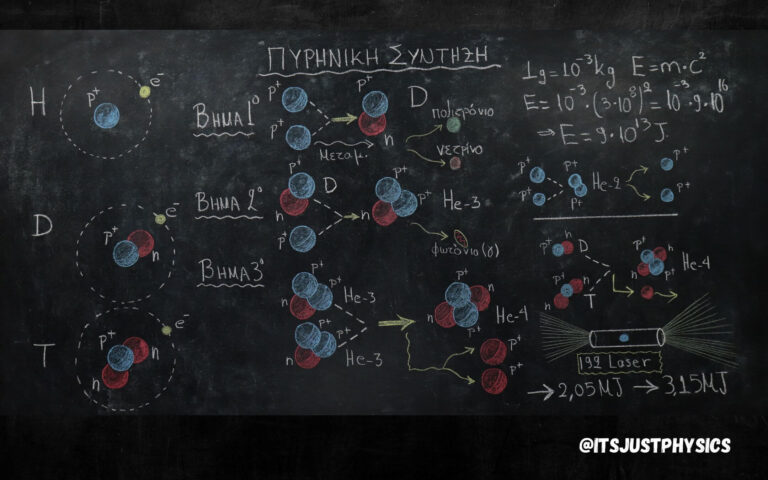 ΠΥΡΗΝΙΚΗ ΣΥΝΤΗΞΗ
H
p+
e-
D
p+
n
e-
T
p+
n
n
e-
Βημα 1°
p+
p+
Μεταμ.
p+
n
D
ποζιτρόνιο
νετρίνο
Βημα 2°
p+
n
D
p+
p+
n
p+
He-3
φωτόνιο (γ)
Βημα 3°
p+
n
p+
He-3
p+
n
p+
He-3
p+
n
n
p+
He-4
p+
p+
1g=10^-3 kg E=m·c^2
E=10^-3·(3·10^8)^2=10^-3·9·10^16
⇒E=9·10^13 J
p+
p+
p+
p+
He-2
p+
p+
p+
n
D
n
p+
n
T
p+
n
n
p+
He-4
n
192 Laser
→2,05MJ →3,15MJ
@ITSJUSTPHYSICS